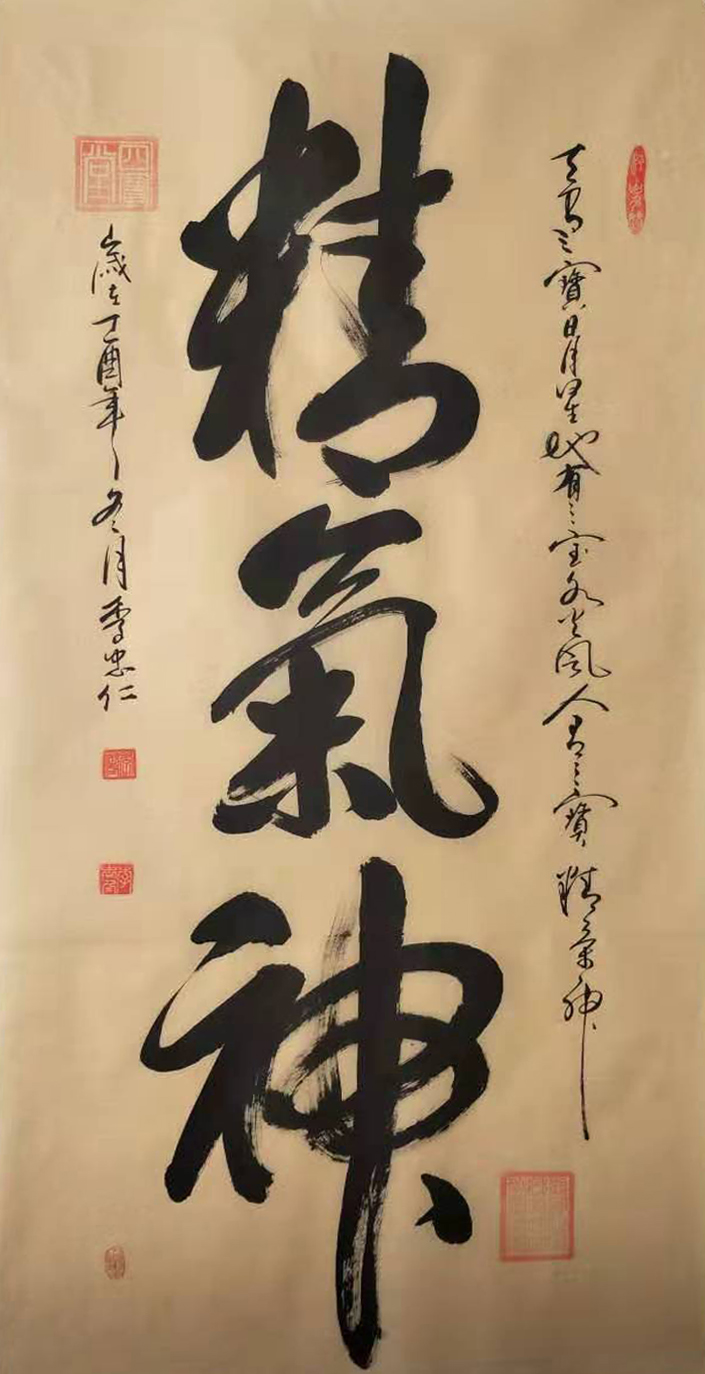 天有三寶日月星地有三宝水火風人有三寶精氣神
精氣神
歲在丁酉年冬月李忠仁